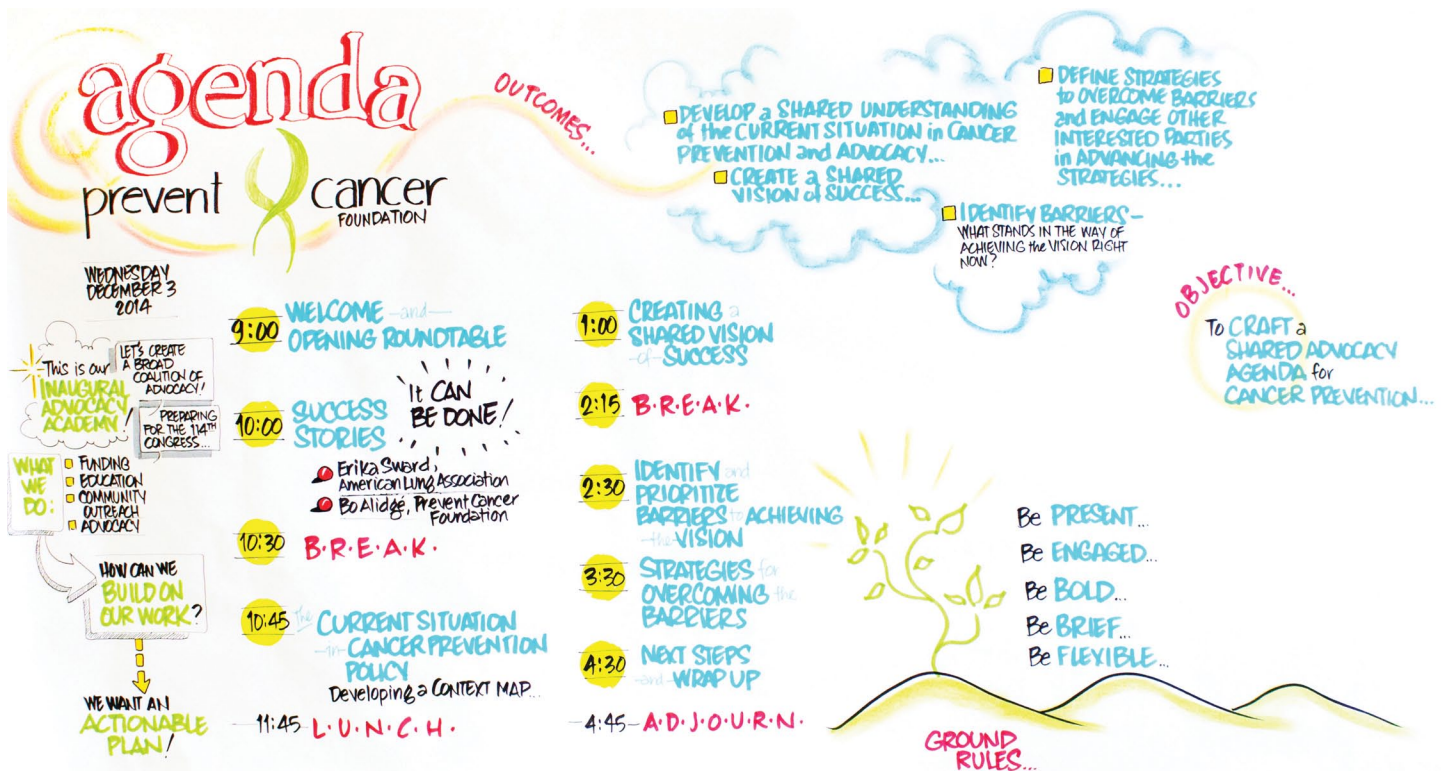 agenda
prevent cancer
FOUNDATION
WEDNESDAY
DECEMBER 3
2014
This is our
INAUGURAL
ADVOCACY
ACADEMY!
LET'S CREATE
A BROAD
COALITION OF
ADVOCACY!
PREPARING
FOR THE 114TH
CONGRESS...
WHAT
WE
DO:
FUNDING
EDUCATION
COMMUNITY
OUTREACH
ADVOCACY
HOW CAN WE
BUILD ON
OUR WORK?
WE WANT AN
ACTIONABLE
PLAN!
9:00 WELCOME and
OPENING ROUNDTABLE
10:00 SUCCESS
STORIES
It CAN
BE DONE!
Erika Sward,
American Lung Association
Bo Aldigé, Prevent Cancer
Foundation
10:30 B.R.E.A.K.
10:45 The CURRENT SITUATION
in CANCER PREVENTION
POLICY
Developing a CONTEXT MAP...
11:45 L.U.N.C.H.
1:00 CREATING a
SHARED VISION
of SUCCESS
2:15 B.R.E.A.K.
2:30 IDENTIFY and
PRIORITIZE
BARRIERS to ACHIEVING
the VISION
3:30 STRATEGIES for
OVERCOMING the
BARRIERS
4:30 NEXT STEPS
and WRAP UP
4:45 A.D.J.O.U.R.N.
OUTCOMES...
DEVELOP a SHARED UNDERSTANDING
of the CURRENT SITUATION in CANCER
PREVENTION and ADVOCACY...
CREATE a SHARED
VISION of SUCCESS...
IDENTIFY BARRIERS–
WHAT STANDS IN THE WAY OF
ACHIEVING the VISION RIGHT
NOW?
DEFINE STRATEGIES
to OVERCOME BARRIERS
and ENGAGE OTHER
INTERESTED PARTIES
in ADVANCING the
STRATEGIES...
OBJECTIVE...
To CRAFT a
SHARED ADVOCACY
AGENDA for
CANCER PREVENTION...
Be PRESENT...
Be ENGAGED...
Be BOLD...
Be BRIEF...
Be FLEXIBLE...
GROUND
RULES...